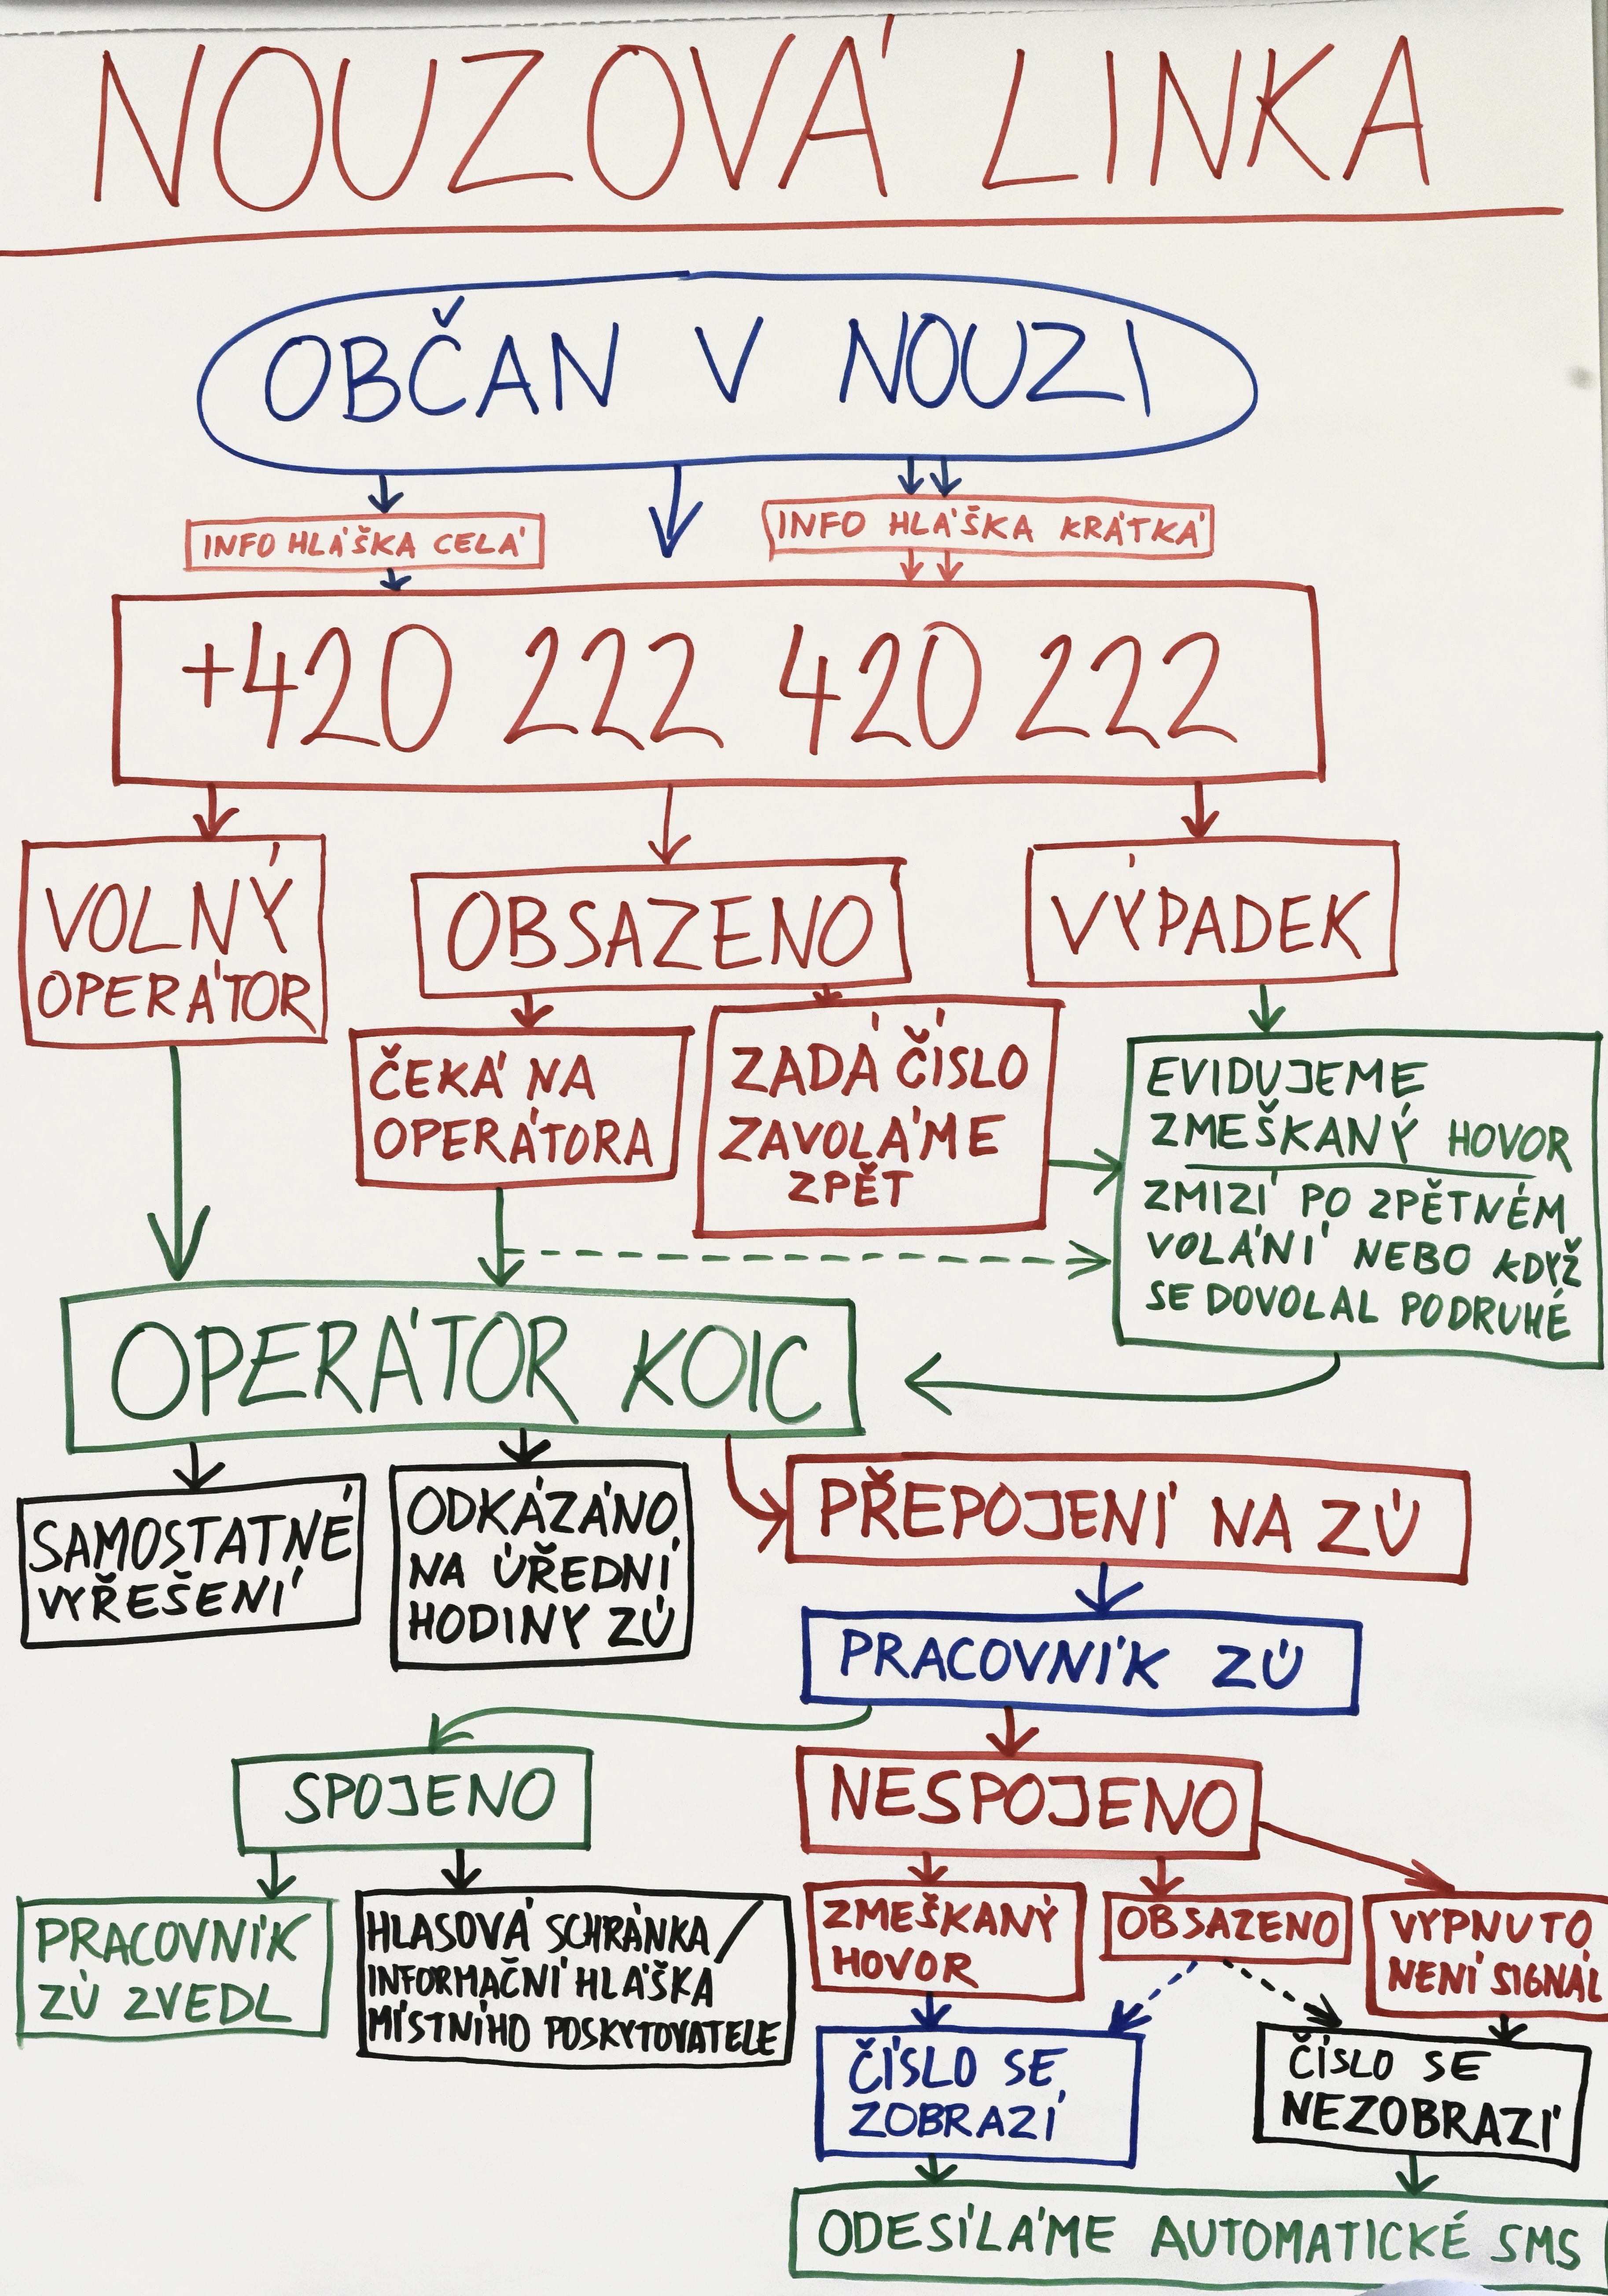 NOUZOVÁ LINKA
OBČAN V NOUZI
INFO HLÁŠKA CELÁ
INFO HLÁŠKA KRÁTKÁ
+420 222 420 222
VOLNÝ
OPERÁTOR
OBSAZENO
VÝPADEK
ČEKÁ NA
OPERÁTORA
ZADÁ ČÍSLO
ZAVOLÁME
ZPĚT
EVIDUJEME
ZMEŠKANÝ HOVOR
ZMIZÍ PO ZPĚTNÉM
VOLÁNÍ NEBO KDYŽ
SE DOVOLAL PODRUHÉ
OPERÁTOR KOIC
SAMOSTATNÉ
VYŘEŠENÍ
ODKÁZÁNO
NA ÚŘEDNÍ
HODINY ZÚ
PŘEPOJENÍ NA ZÚ
PRACOVNÍK ZÚ
SPOJENO
NESPOJENO
PRACOVNÍK
ZÚ ZVEDL
HLASOVÁ SCHRÁNKA/
INFORMAČNÍ HLÁŠKA
MÍSTNÍHO POSKYTOVATELE
ZMEŠKANÝ
HOVOR
OBSAZENO
VYPNUTO
NENÍ SIGNÁL
ČÍSLO SE
ZOBRAZÍ
ČÍSLO SE
NEZOBRAZÍ
ODESÍLÁME AUTOMATICKÉ SMS